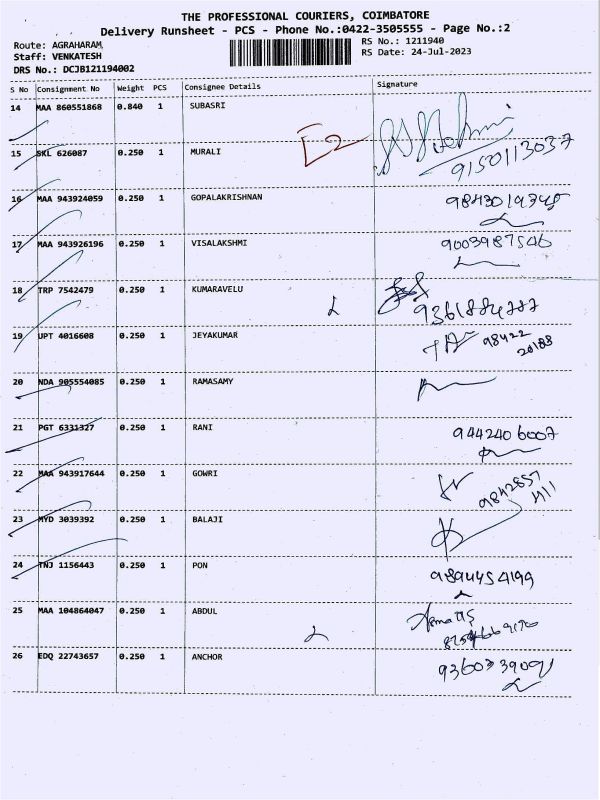 THE PROFESSIONAL COURIERS, COIMBATORE
Delivery Runsheet - PCS - Phone No.:0422-3505555 - Page No.:2
Route: AGRAHARAM, RS No.: 1211940
Staff: VENKATESH RS Date: 24-Jul-2023
DRS No.: DCJB121194002
S No Consignment No Weight PCS Consignee Details Signature
14 MAA 860551868 0.840 1 SUBASRI
9150113037
15 SKL 626087 0.250 1 MURALI
16 MAA 943924059 0.250 1 GOPALAKRISHNAN
17 MAA 943926196 0.250 1 VISALAKSHMI 9003987546
18 TRP 7542479 0.250 1 KUMARAVELU
19 UPT 4016608 0.250 1 JEYAKUMAR 98422
20188
20 NDA 905554085 0.250 1 RAMASAMY
21 PGT 6331327 0.250 1 RANI 9442406007
22 MAA 943917644 0.250 1 GOWRI 9842857
411
23 MYD 3039392 0.250 1 BALAJI
24 TNJ 1156443 0.250 1 PON 9894454199
25 MAA 104864047 0.250 1 ABDUL
26 EDQ 22743657 0.250 1 ANCHOR